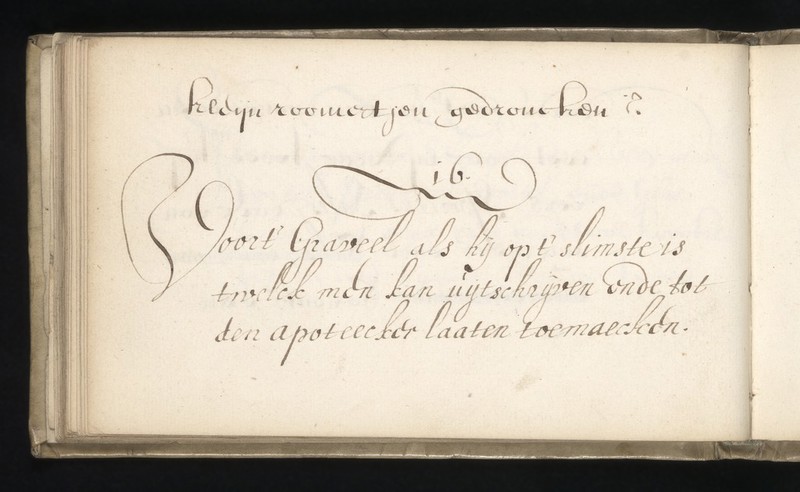 kleijn roomertjen gedroncken
16.
Voort Graveel als hij opt slimste is
twelck men kan uijtschrijven ende tot
den apoteecker laaten toemaecken.